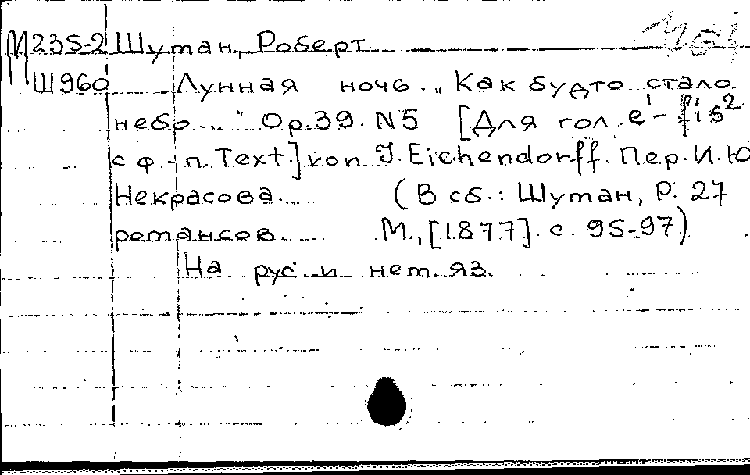 М 235-2 Шуман, Роберт
Ш960 Лунная ночь. „Как будто стало
небо..." Op.39. N5 [Для гол. e¹-fis²
с ф-п. Text.] von J. Eichendorff. Пер. И. Ю
Некрасова. (В сб.: Шуман, Р. 27
романсов. М., [1877]. с 95-97)
На рус и нем. яз.